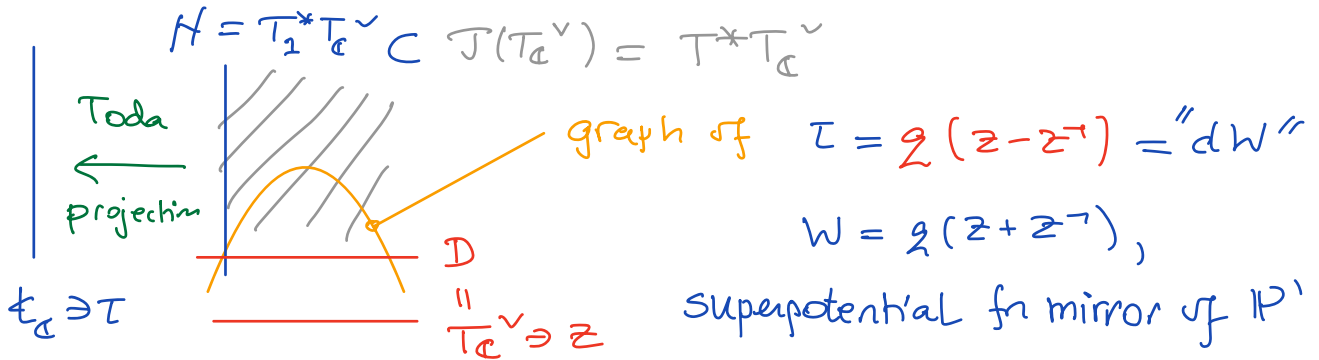 N = T₁*T_ℂ^∨ ⊂ T(T_ℂ^∨) = T*T_ℂ^∨
Toda
←
projection
graph of τ = q(z-z⁻¹) = "dW"
W = q(z+z⁻¹),
superpotential fn mirror of ℙ¹
D
=
T_ℂ^∨ ∋ z
𝔱_ℂ ∋ τ